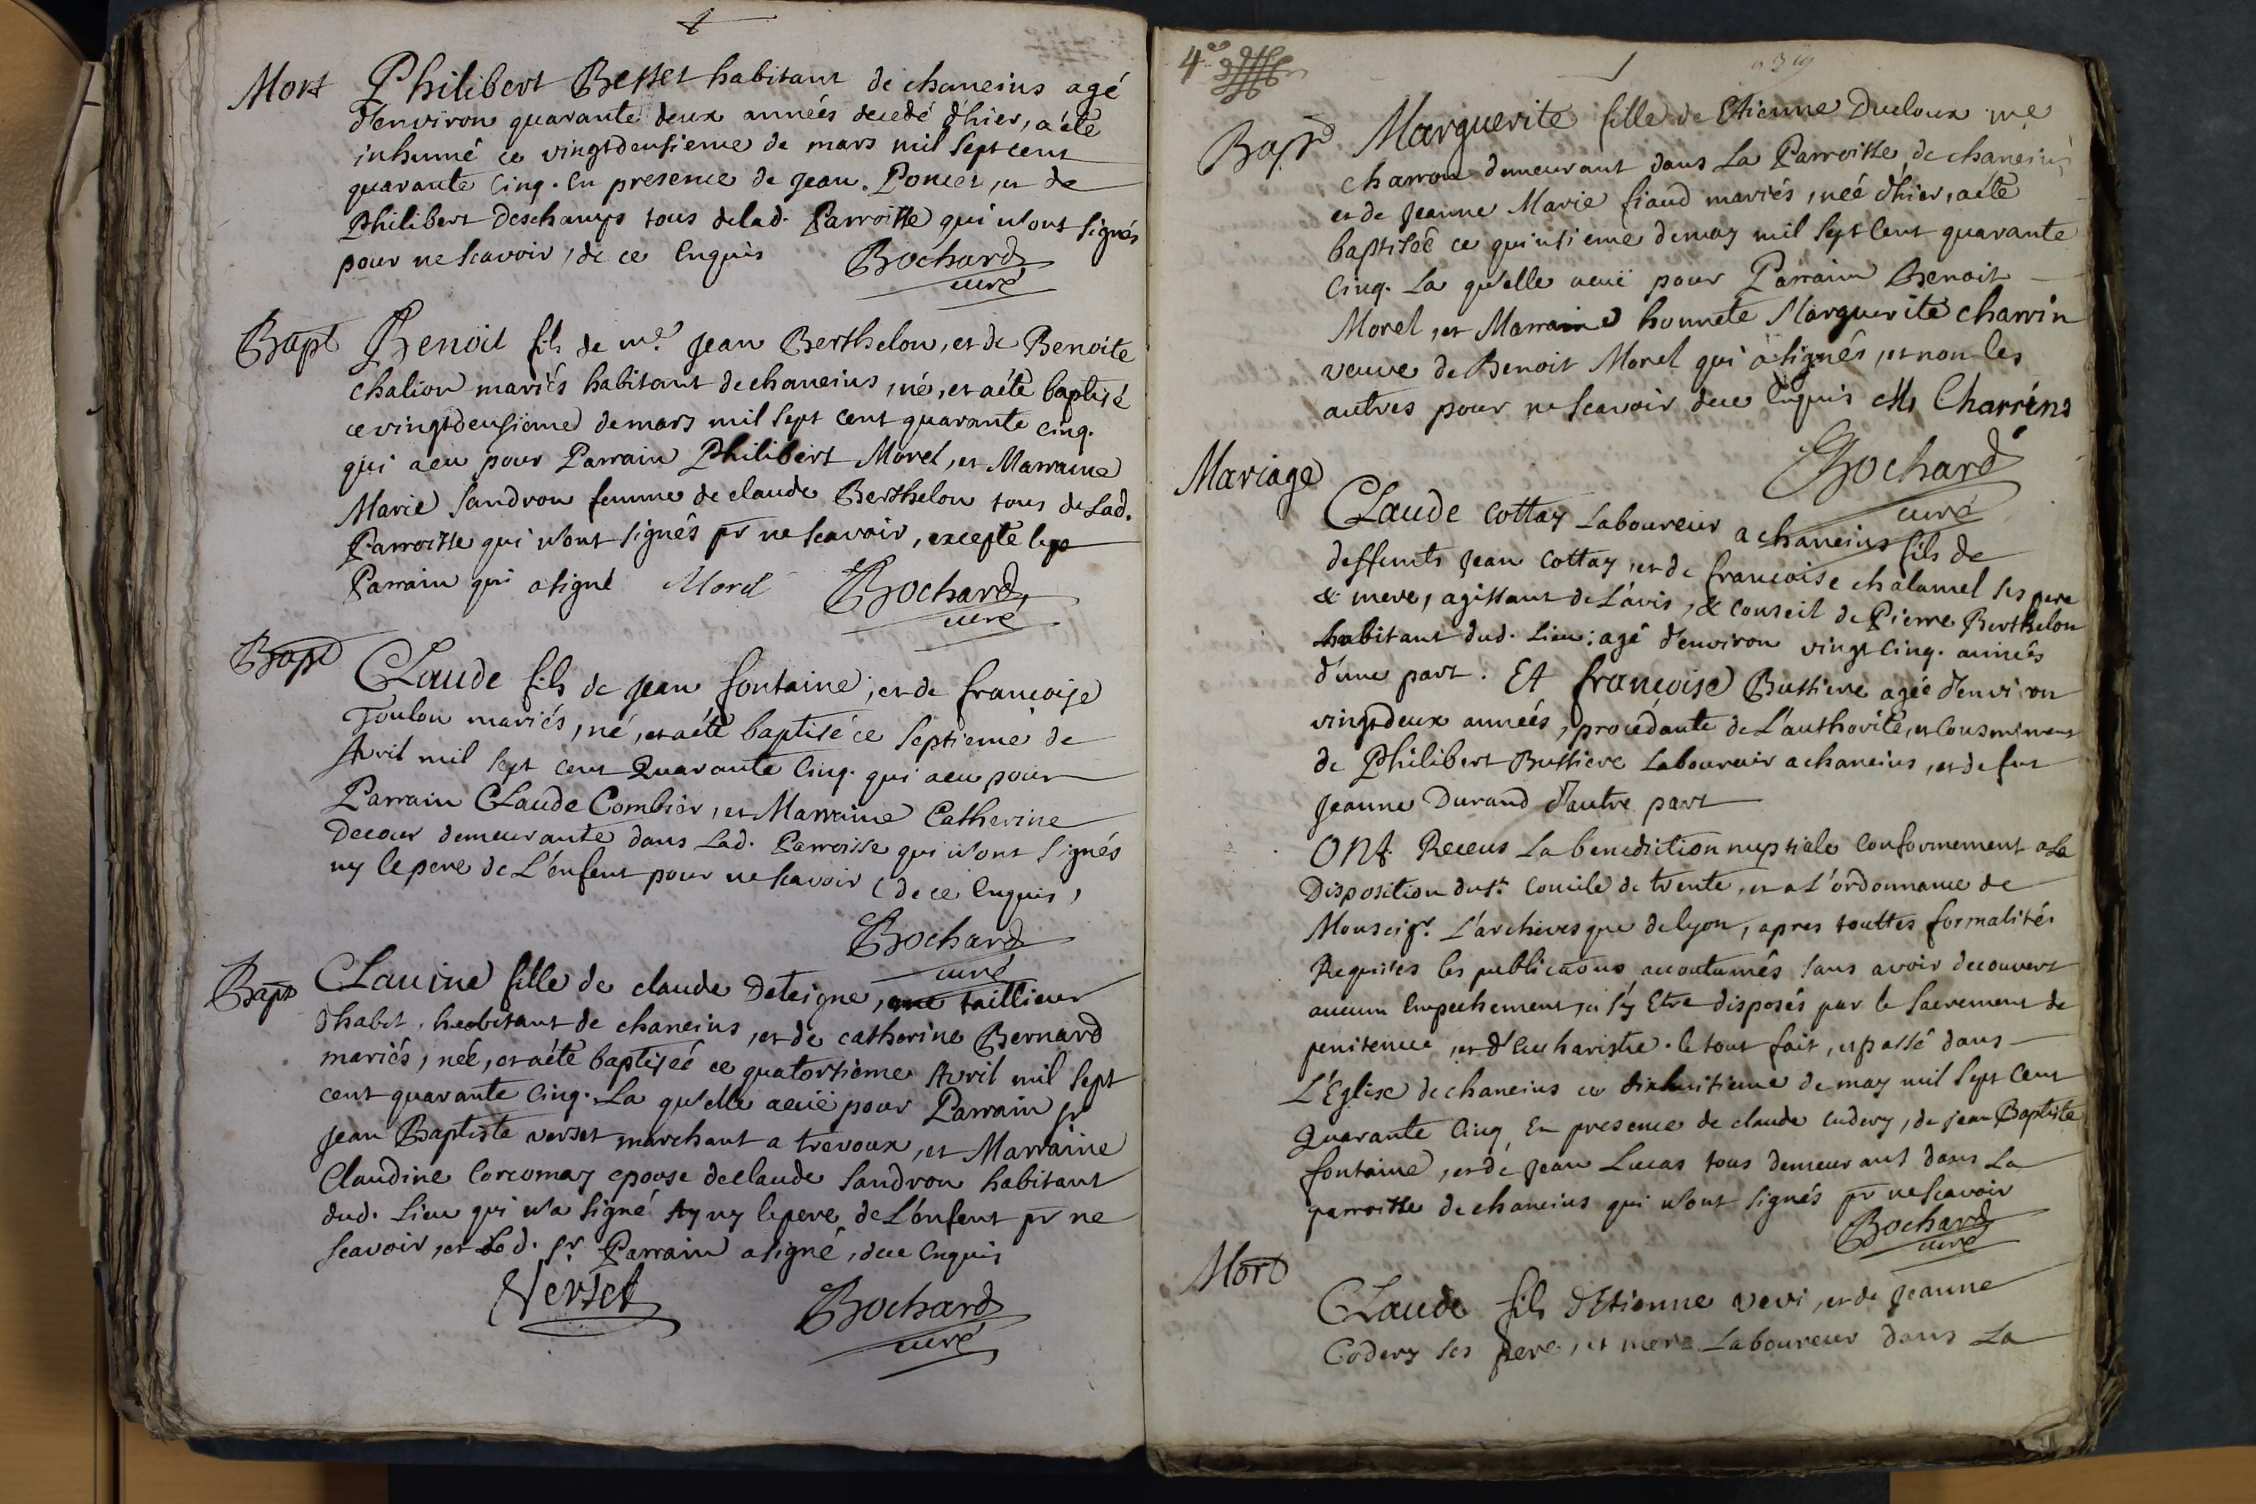 Mort
Philibert Besset habitant de chaneins agé
d'environ quarante deux années decedé d'hier, a été
inhumé ce vingtdeusieme de mars mil sept cent
quarante Cinq. En presence de Jean. Poncet, et de
Philibert Deschamps tous delad. Parroisse qui n'ont signés
pour ne scavoir, de ce Enquis
Bochard
curé
Bapt
Benoit fils de me. Jean Berthelon, et de Benoite
chalion mariés habitant de chaneins, né, et a été baptisé
ce vingtdeusieme de mars mil sept cent quarante cinq.
qui a eu pour Parrain Philibert Morel, et Marraine
Marie Sandron femme de claude Berthelon tous de Lad.
Parroisse qui n'ont signés pr ne scavoir, excepté le
Parrain qui a signé Morel
Bochard
curé
Bapt
CLaude fils de Jean fontaine, et de francoise
Toulon mariés, né, et a été baptisé ce septieme de
Avril mil sept cent Quarante Cinq. qui a eu pour
Parrain CLaude Combier, et Marraine Catherine
Decour demeurante dans Lad. Parroisse qui n'ont signés
ny le pere de L'enfent pour ne scavoir (de ce Enquis)
Bochard
curé
Bapt
CLaudine fille de claude Deteigne, taillieur
d'habit, habitant de chaneins, et de catherine Bernard
mariés, née, et a été baptiseé ce quatorsieme Avril mil sept
cent quarante Cinq. La qu'elle a eüe pour Parrain sr
Jean Baptiste verset marchant a trevoux, et Marraine
Claudine Corcomay epouse de claude Sandron habitant
dud. Lieu qui n'a signé ny le pere de L'enfent pr ne
scavoir, et Led. sr. Parrain a signé, de ce Enquis
Verset
Bochard
curé
4e
Bapt
Marguerite fille de Etienne Ducloux me
charron demeurant dans La Parroisse de chaneins
et de Jeanne Marie fiaud mariés, née d'hier, a été
baptisée ce quinsieme de may mil sept Cent quarante
Cinq. La qu'elle a eüe pour Parrain Benoit
Morel, et Marraine honnete Marguerite charrin
veuve de Benoit Morel qui a signés, et non les
autres pour ne scavoir de ce Enquis Ms Charrens
Bochard
curé
Mariage
CLaude Cottay Laboureur a chaneins fils de
deffunts Jean Cottay, et de francoise chalamel ses pere
& mere, agissant de L'avis, & Conseil de Pierre Berthelon
habitant dud. Lieu; agé d'environ vingt Cinq. années
d'une part. Et francoise Bussiere ageé d'environ
vingtdeux années, procédante de L'authorité, et Consentement
de Philibert Bussiere Laboureur a chaneins, et de fut
Jeanne Durand d'autre part
ONt Receus La benediction nuptiale Conformement a La
Disposition du St. Concile de trente, et a L'ordonnance de
Monseigr. L'archevesque de lyon, apres touttes formalités
Requises les publications accoutumés sans avoir decouvert
aucun Empechement, et s'y Etre disposés par le Sacrement de
penitence, et d'Eucharistie. le tout fait, et passé dans
L'Eglise de chaneins ce dixhuitieme de may mil sept Cent
Quarante Cinq, En presence de claude Cudery, de jean Baptiste
fontaine, et de Jean Lucas tous demeurant dans La
parroisse de chaneins qui n'ont signés pr ne scavoir
Bochard
curé
Mort
CLaude fils d'Etienne veri, et de Jeanne
Codery ses pere, et mere Laboureur dans La